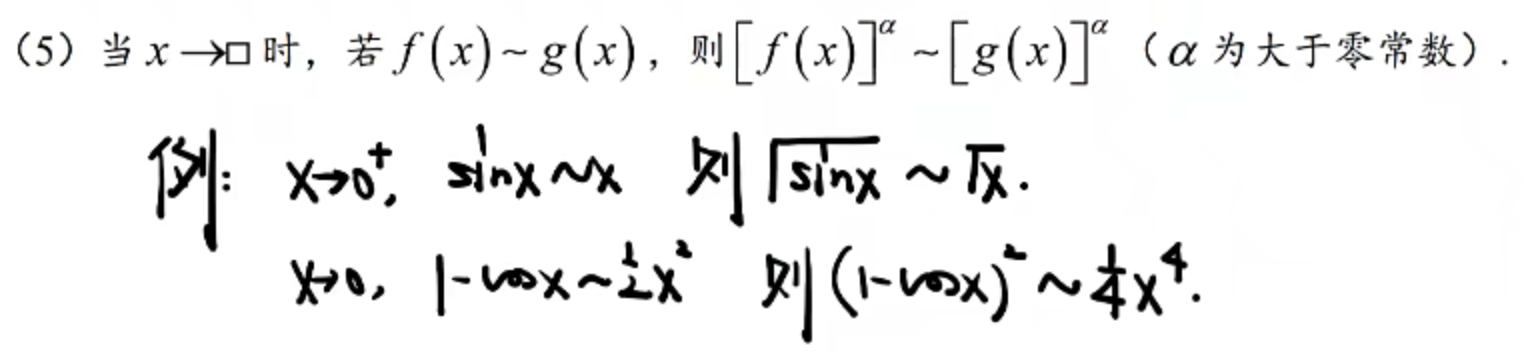 （5）当 x →□ 时，若 f(x) ~ g(x)，则 [f(x)]^α ~ [g(x)]^α（α 为大于零常数）.
例: x→0⁺, sinx ~ x 则 √sinx ~ √x.
x→0, 1-cosx ~ ½x² 则 (1-cosx)² ~ ¼x⁴.